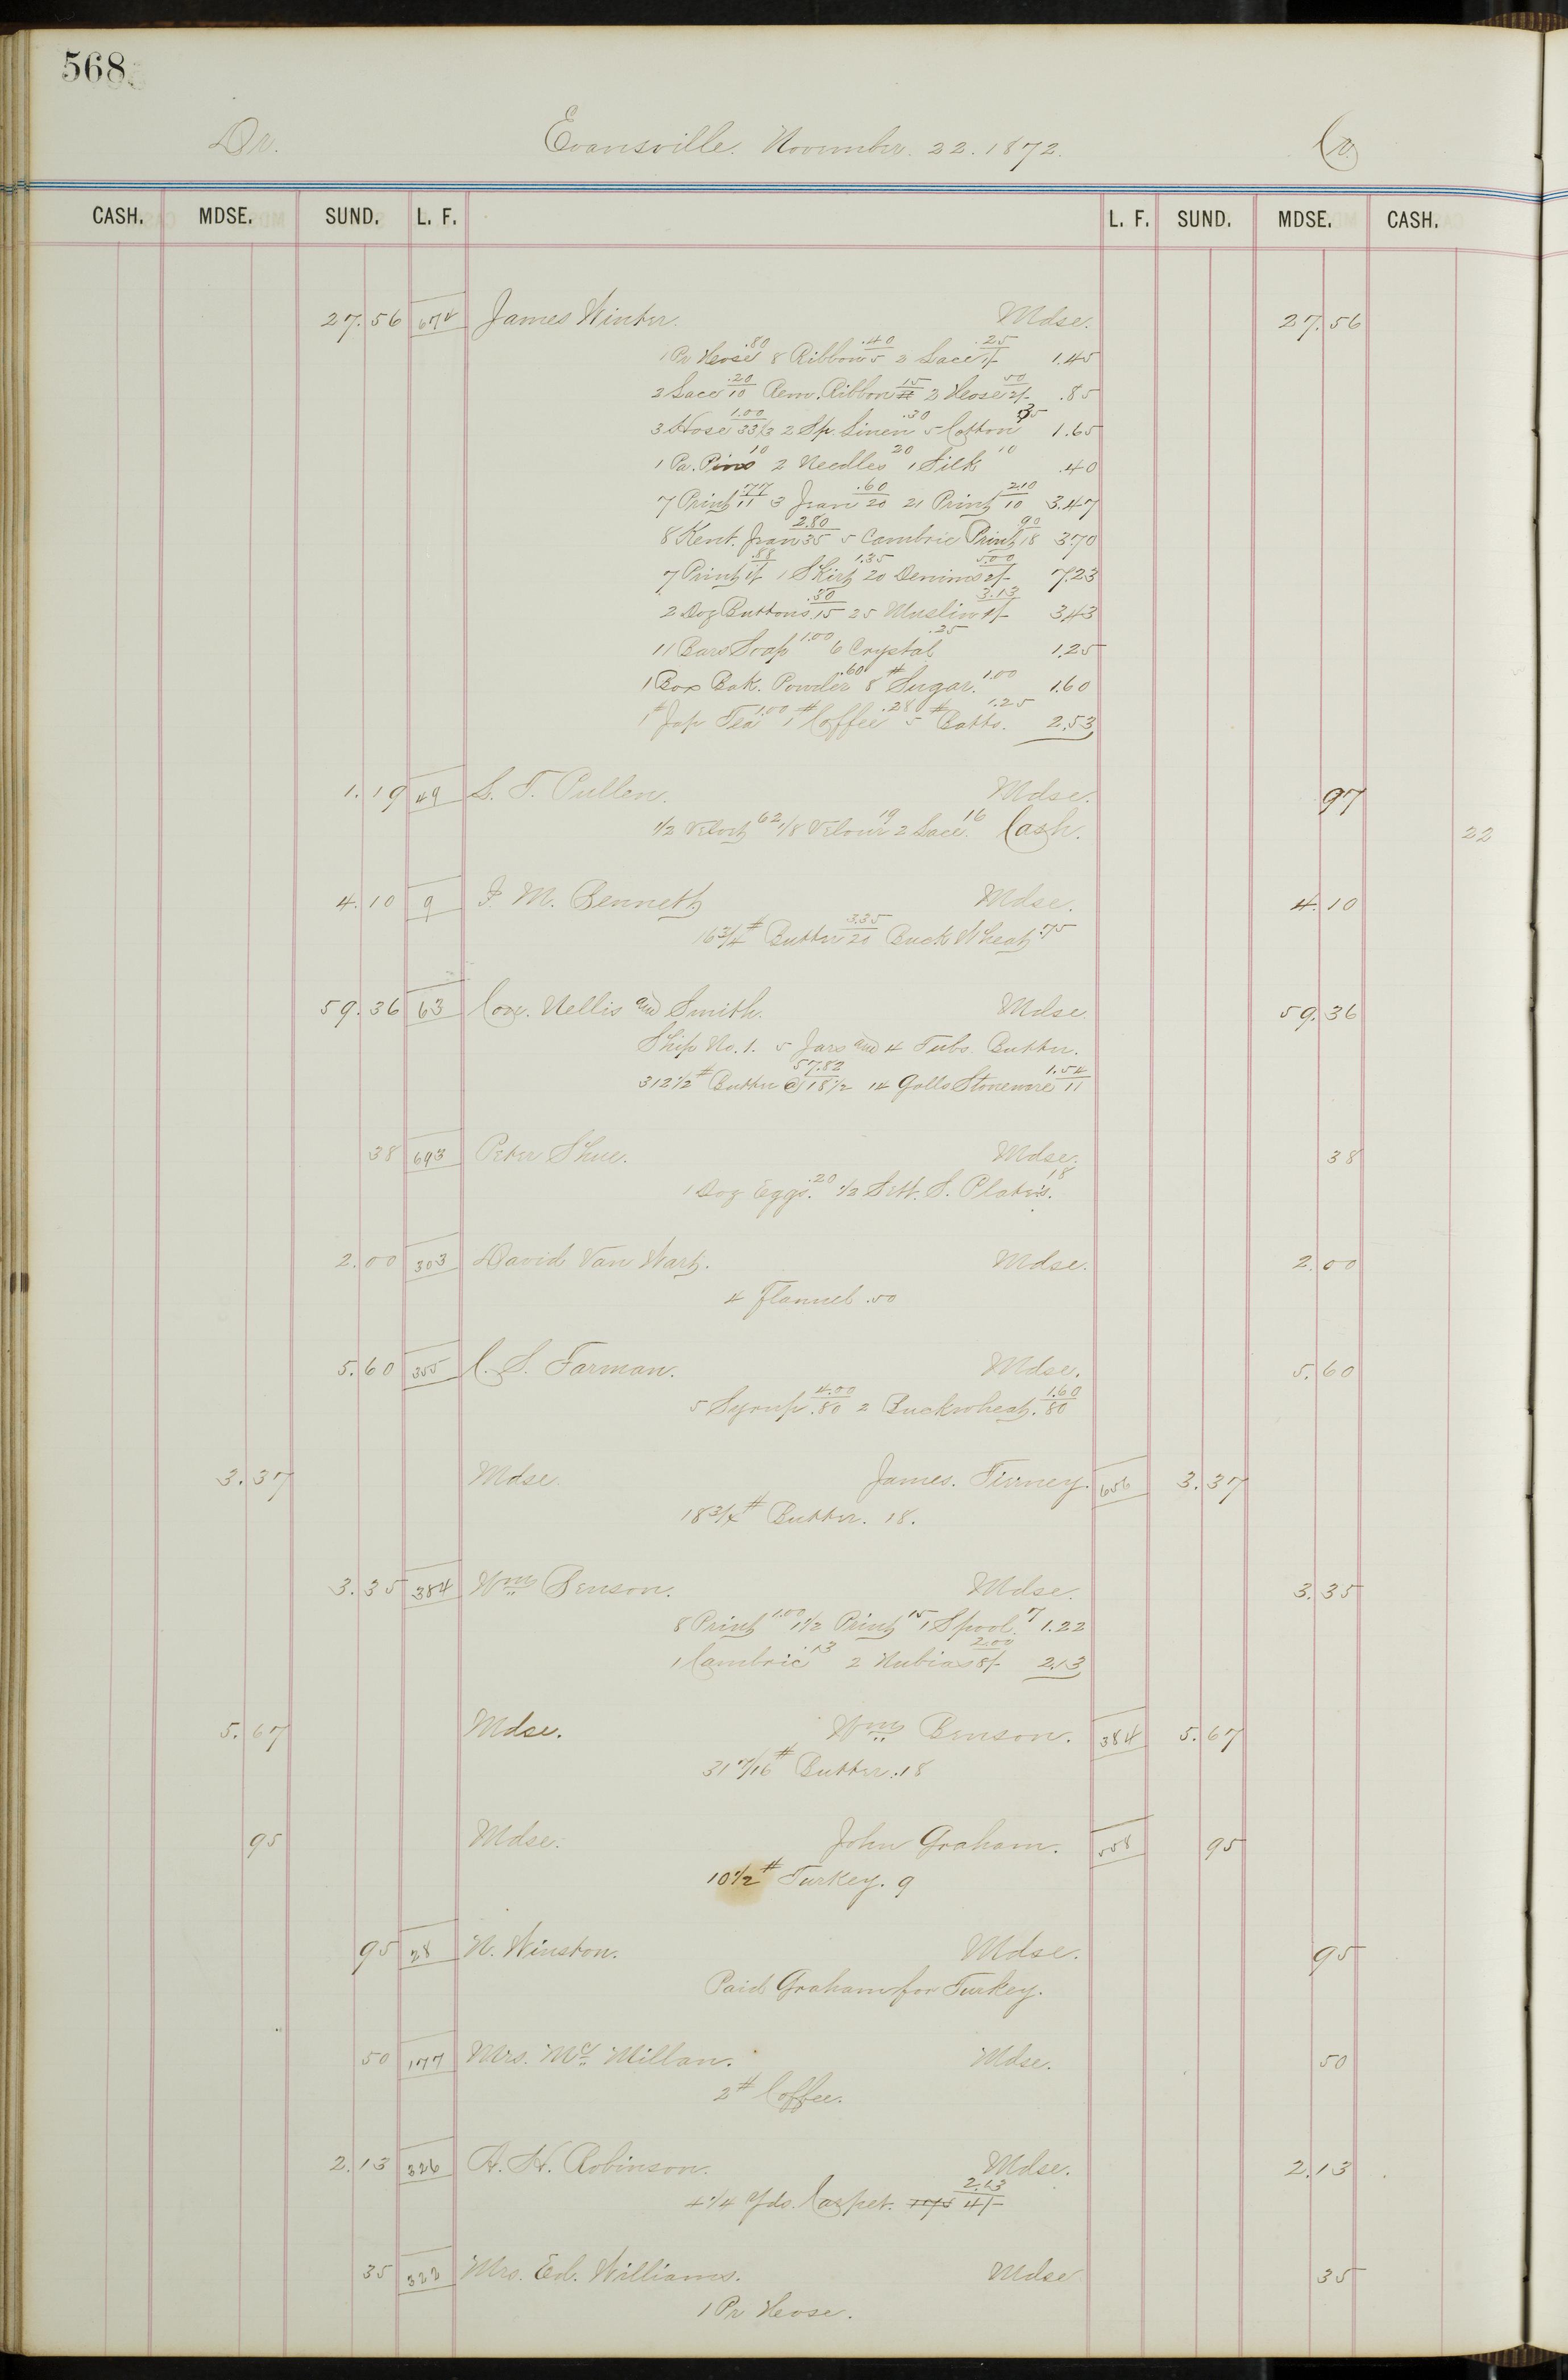 568
Dr. Evansville. November. 22. 1872. Cr.
CASH. MDSE. SUND. L. F. L. F. SUND. MDSE. CASH.
27.56 674 James Winter. Mdse. 27.56
1 Pr Hose .80 8 Ribbon .40/5 2 Lace .25/1/- 1.45
2 Lace .20/10 Rem. Ribbon 15 2 Hose 50/2/- .85
3 Hose 1.00/33 1/3 2 Sp. Linen .30 5 Cotton 35 1.65
1 Pa. Pins 10 2 Needles 20 1 Silk 10 .40
7 Print .77/11 3 Jean .60/20 21 Print 2.10/10 3.47
8 Kent. Jean 2.80/35 5 Cambric Print 90/18 3.70
7 Print .88/1/- 1 Skirt 1.35 20 Denims 5.00/2/- 7.23
2 Doz Buttons .30/15 25 Muslin 3.13/1/- 3.43
11 Bars Soap 1.00 6 Crystal .25 1.25
1 Box Bak. Powder .60 8 # Sugar. 1.00 1.60
1 # Jap Tea 1.00 1 # Coffee .28 5 # Batts. 1.25 2.53
1.19 49 S. T. Pullen. Mdse. 97
1/2 Velvet 62 1/8 Velour 19 2 Lace. 16 Cash. 22
4.10 9 F. M. Bennett Mdse. 4.10
16 3/4 # Butter 3.35/20 Buck Wheat .75
59.36 63 Coe. Nellis and Smith. Mdse. 59.36
Ship No. 1. 5 Jars and 4 Tubs Butter.
312 1/2 # Butter @ 57.82/18 1/2 14 Galls Stoneware 1.54/11
38 693 Peter Shue. Mdse. 38
1 Doz Eggs. .20 1/2 Sett. S. Plates. 18
2.00 303 David Van Wart. Mdse. 2.00
4 Flannel .50
5.60 355 C. S. Farman. Mdse. 5.60
5 Syrup 4.00/.80 2 Buckwheat. 1.60/80
3.37 Mdse. James. Tirney. 656 3.37
18 3/4 # Butter. 18.
3.35 384 Wm Benson. Mdse. 3.35
8 Print 1.00 1 1/2 Print 15 1 Spool. 7 1.22
1 Cambric .13 2 Nubias 2.00/8/- 2.13
5.67 Mdse. Wm Benson. 384 5.67
31 7/16 # Butter .18
95 Mdse. John Graham. 558 95
10 1/2 # Turkey. 9
95 28 N. Winston. Mdse. 95
Paid Graham for Turkey.
50 177 Mrs. Mc Millan. Mdse. 50
2 # Coffee.
2.13 326 A. H. Robinson. Mdse. 2.13
4 1/4 Yds. Carpet. 2.13/4/-
35 322 Mrs. Ed. Williams. Mdse 35
1 Pr Hose.